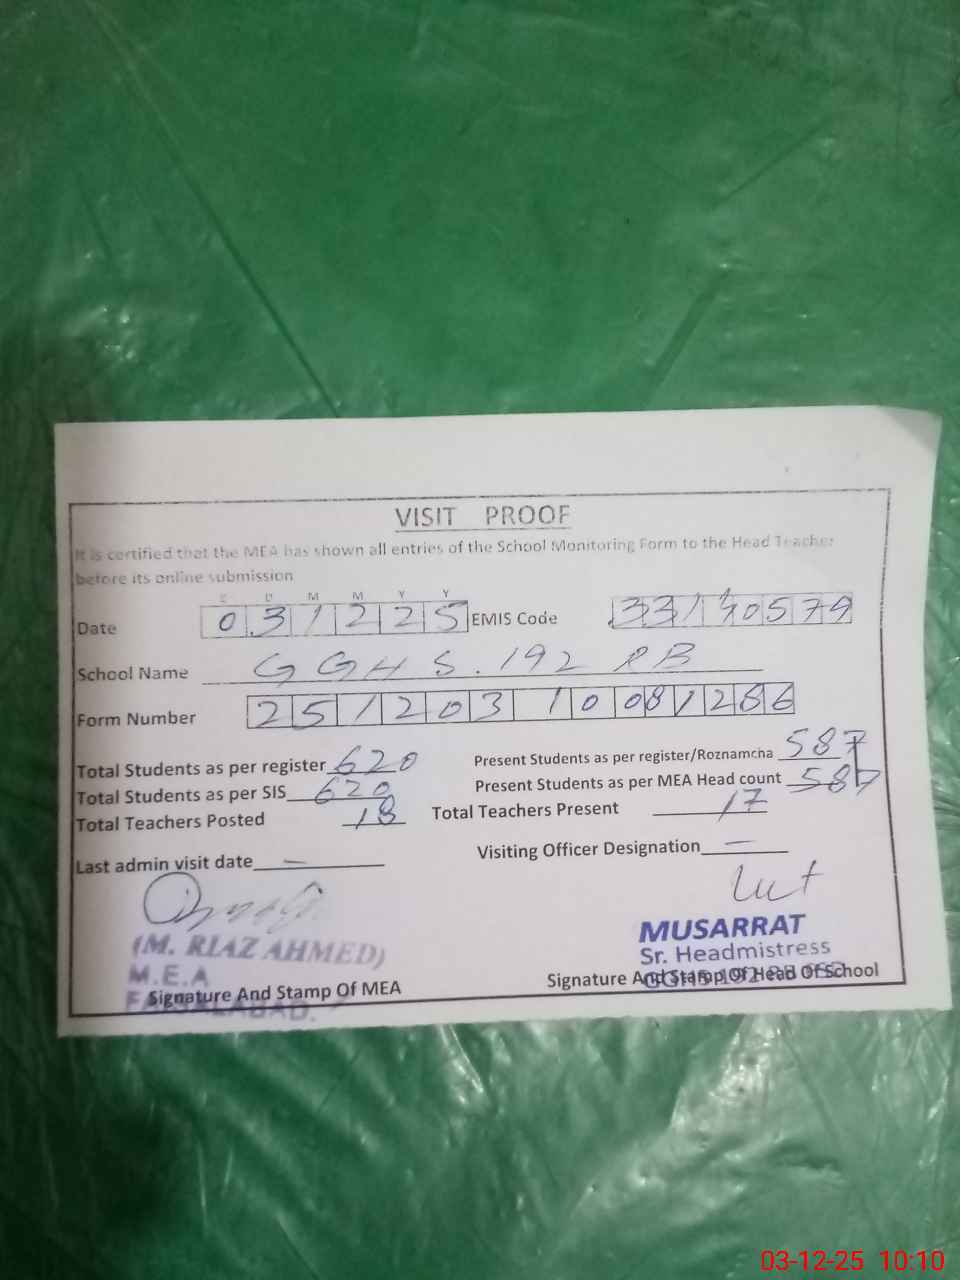 VISIT PROOF
It is certified that the MEA has shown all entries of the School Monitoring Form to the Head Teacher
before its online submission
D D M M Y Y
Date 0 3 1 2 2 5 EMIS Code 33140579
School Name GGHS. 192 RB
Form Number 2512031008 1286
Total Students as per register 620 Present Students as per register/Roznamcha 587
Total Students as per SIS 620 Present Students as per MEA Head count 587
Total Teachers Posted 18 Total Teachers Present 17
Last admin visit date — Visiting Officer Designation —
(M. RIAZ AHMED)
M.E.A
FAISALABAD.
Signature And Stamp Of MEA
MUSARRAT
Sr. Headmistress
GGHS 192 RB
Signature And Stamp Of Head Of School
03-12-25 10:10